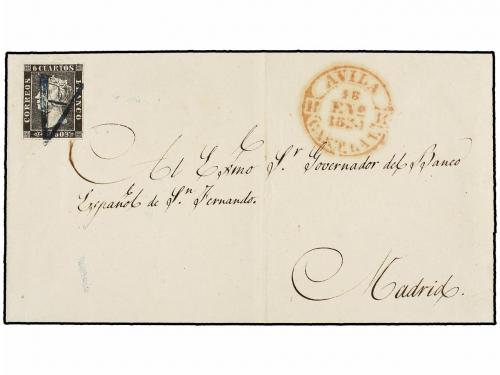 6 CUARTOS
CORREOS
FRANCO
AVILA
18
ENº
CAST.LA
Al Exmo Sr Governador del Banco
Español de Sn Fernando.
Madrid.